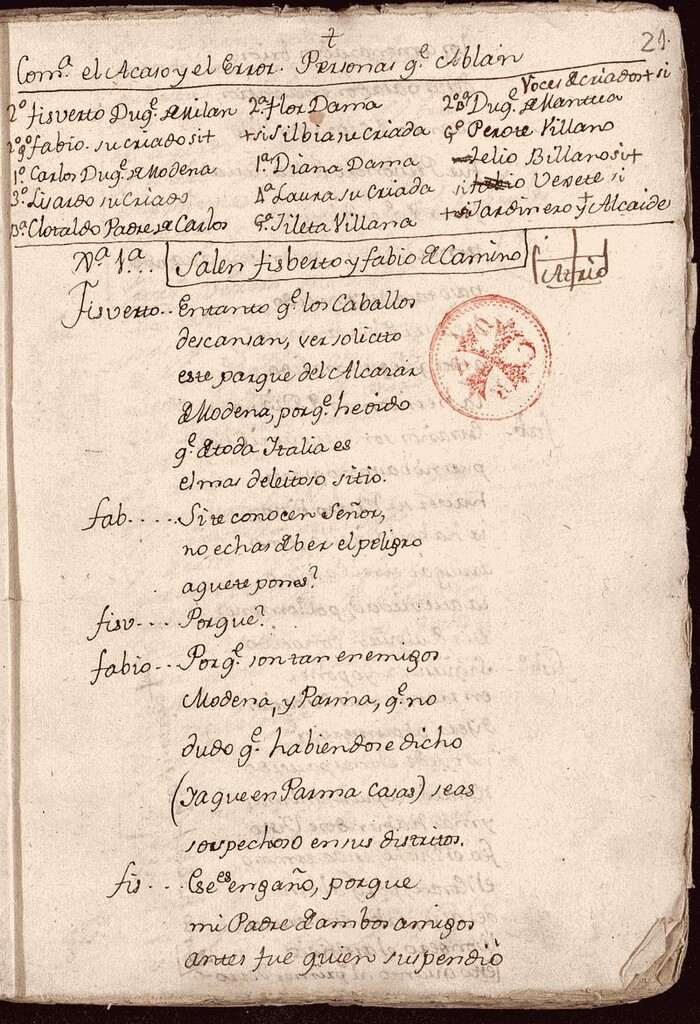 21.
Com.ª el Acaso y el Error. Personas q.e Ablan
Voces de criados + si
2º fisverto Duq.e de Milan 2.ª Flor Dama 2º Duq.e de Mantua
fabio. su criado si + + si Silbia su criada Gº Perote Villano
1º Carlos Duq.e de Modena 1.ª Diana Dama Lelio Billano si +
3º Lisardo su criado 4ª Laura su criada si fabio Verete si
Bª Clotaldo Padre de Carlos Gª Jileta Villana + si Jardinero y Alcaide
N.ª 1.ª .. Salen fisberto y fabio de Camino
Fisverto .. En tanto q.e los Caballos
descansan, ver solicito
este parque del Alcazar
de Modena, porq.e he oido
q.e de toda Italia es
el mas deleitoso sitio.
fab .... Si te conocen Señor,
no echas de ber el peligro
a que te pones?
fisv ... Porque?
fabio .. Porq.e son tan enemigos
Modena, y Parma, q.e no
dudo q.e habiendose dicho
(Ya que en Parma Casas) seas
sospechoso en sus distritos.
fis ... Ese es engaño, porque
mi Padre de ambos amigos
antes fue quien suspendiò